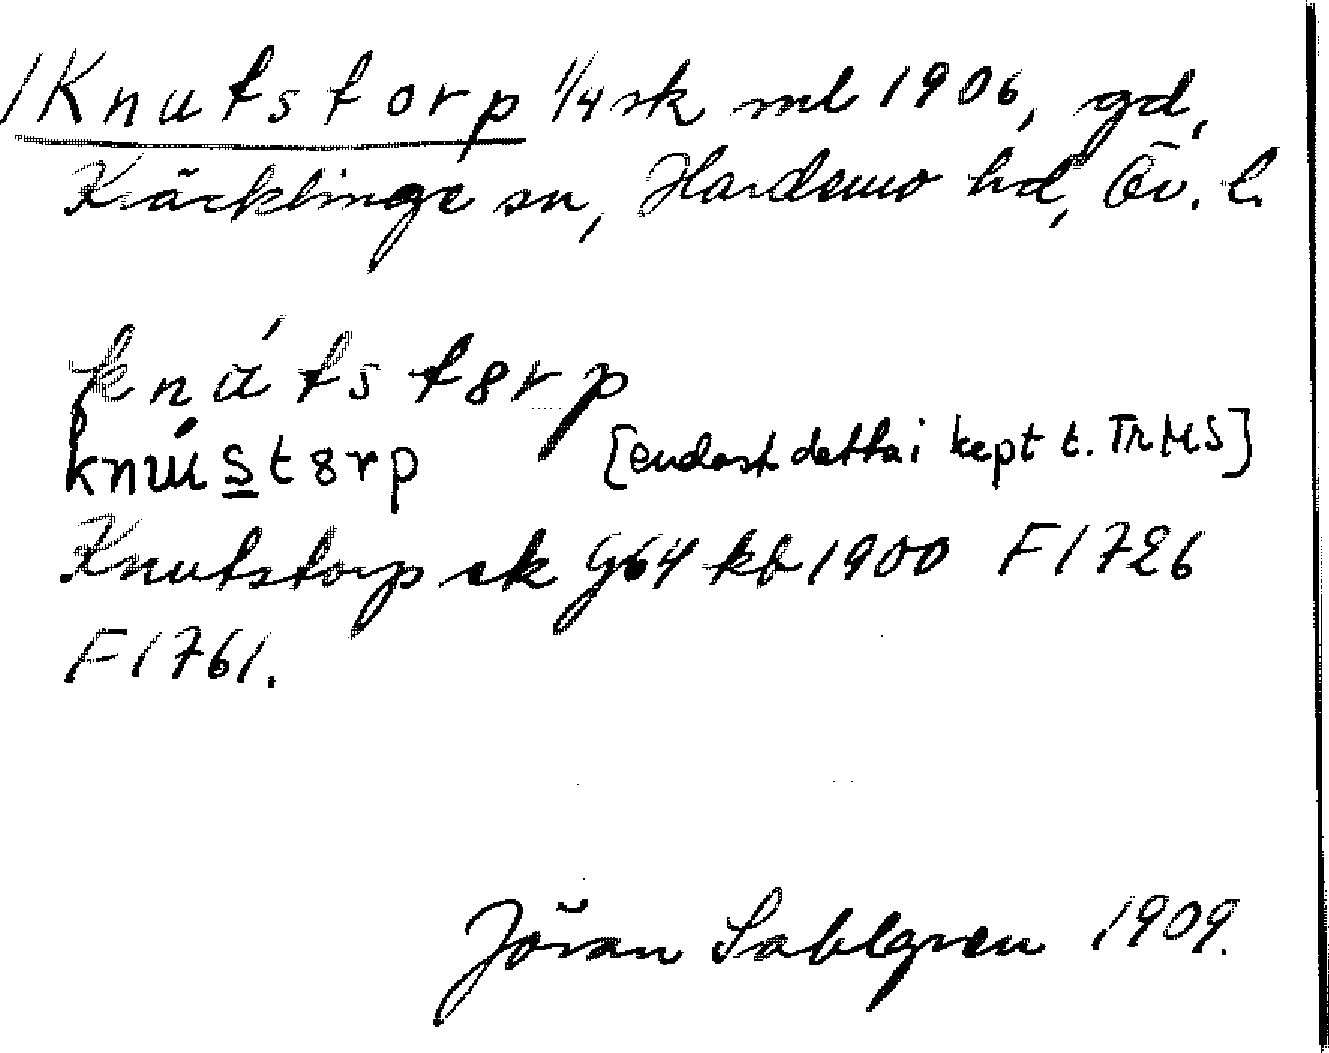 /Knutstorp 1/4 sk ml 1906, gd,
Kräcklinge sn, Hardemo hd, Ör. l.
knút̄s tȣrp
knɯ́stȣrp [endast detta i kept t. TrMS]
Knutstorp sk G64 kb 1900 F1726
F1761.
Jöran Sahlgren 1909.